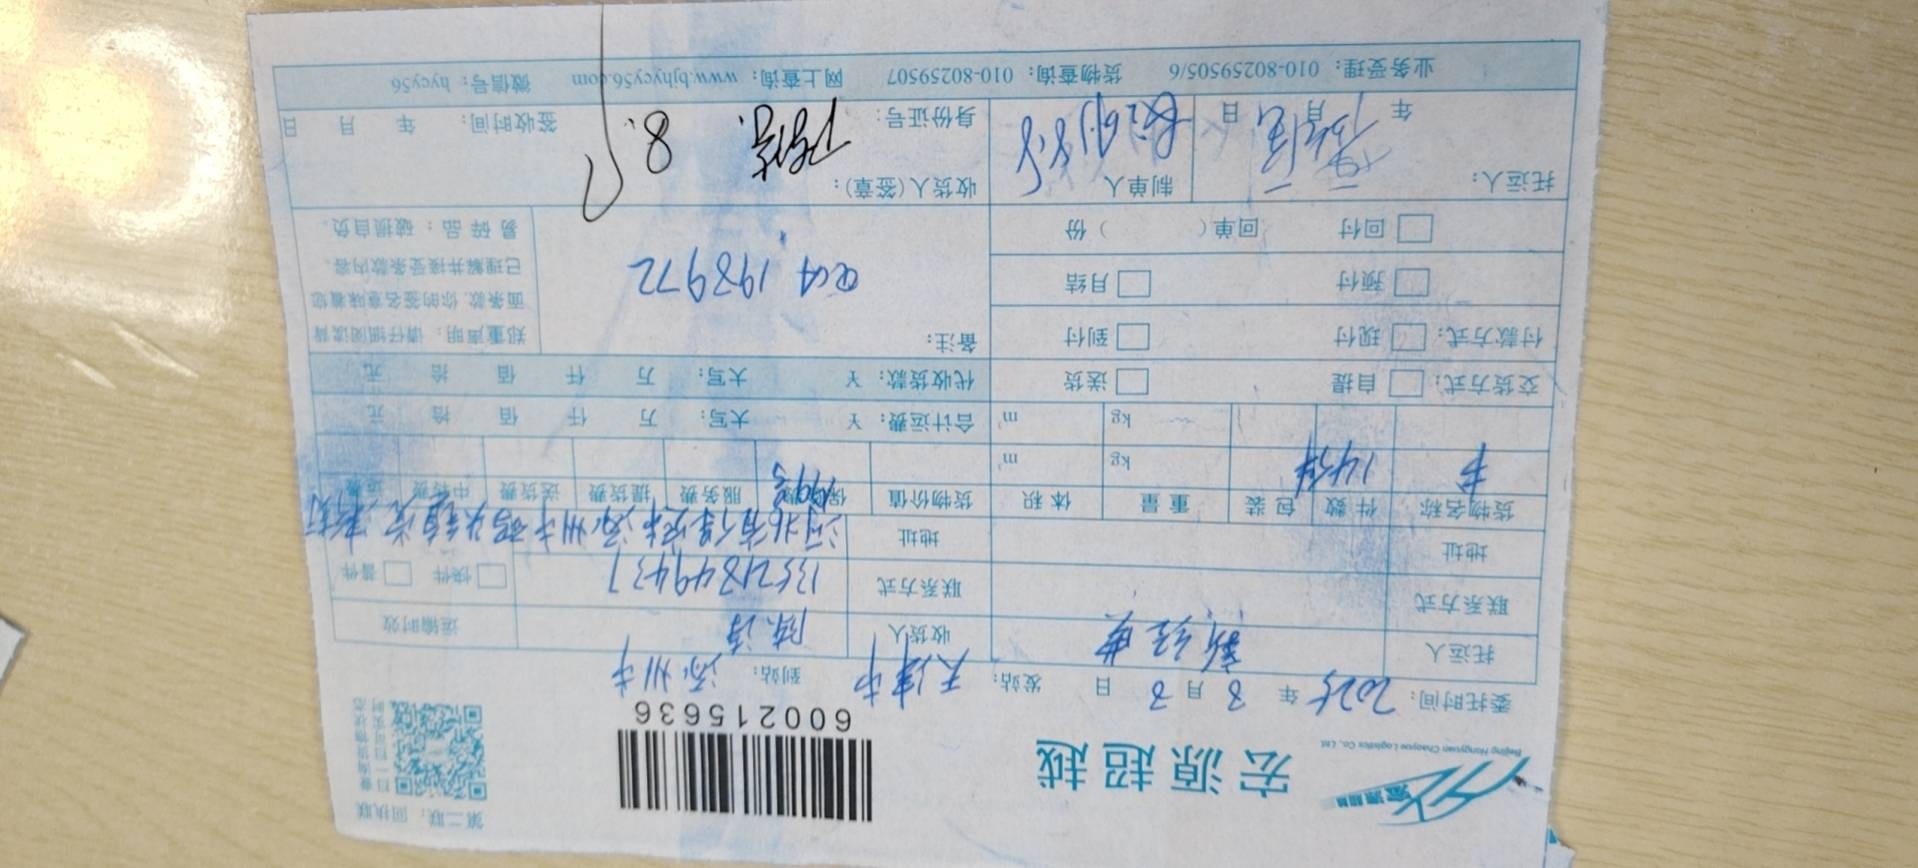 宏源超越
Beijing Hongyuan Chaoyue Logistics Co., Ltd.
宏源超越
600215636
第二联：回执联
扫一扫可实时
查询货物状态
委托时间： 2025 年 8 月 8 日 发站： 天津市 到站： 涿州市
托运人 新经典 收货人 陈涛 运输时效
联系方式 联系方式 13521849437 快件 普件
地址 地址 河北省保定市涿州市码头镇
货物名称 件数 包装 重量 体积 货物价值 保价费 服务费 提货费 送货费 中转费 运费
书 14件 kg m³
kg m³ 合计运费： ￥ 大写： 万 仟 佰 拾 元
交货方式： 自提 送货 代收货款： ￥ 大写： 万 仟 佰 拾 元
付款方式： 现付 到付 备注：
预付 月结
回付 回单（ ）份
198972
郑重声明：请仔细阅读背
面条款，你的签名意味着您
已理解并接受条款内容。
易碎品：破损自负。
托运人： 制单人 收货人（签章）：
年 月 日 8.8 身份证号： 8. 签收时间： 年 月 日
业务受理：010-80259505/6 货物查询：010-80259507 网上查询：www.bjhycy56.com 微信号：hycy56